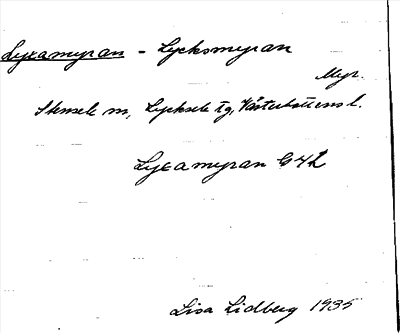 Lyxamyran - Lycksmyran
Myr.
Stensele m, Lycksele tg, Västerbottens l.
Lyxamyran G4h
Lisa Lidberg 1935